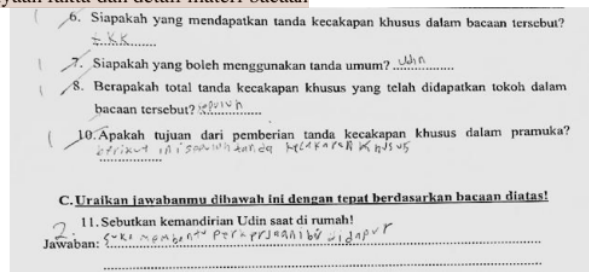 6. Siapakah yang mendapatkan tanda kecakapan khusus dalam bacaan tersebut?
KK
7. Siapakah yang boleh menggunakan tanda umum? Udin
8. Berapakah total tanda kecakapan khusus yang telah didapatkan tokoh dalam
bacaan tersebut? sepuluh
10. Apakah tujuan dari pemberian tanda kecakapan khusus dalam pramuka?
berikut ini sepuluh tanda kecakapan khusus
C. Uraikan jawabanmu dibawah ini dengan tepat berdasarkan bacaan diatas!
11. Sebutkan kemandirian Udin saat di rumah!
2.
Jawaban: suka membantu ibu didapur